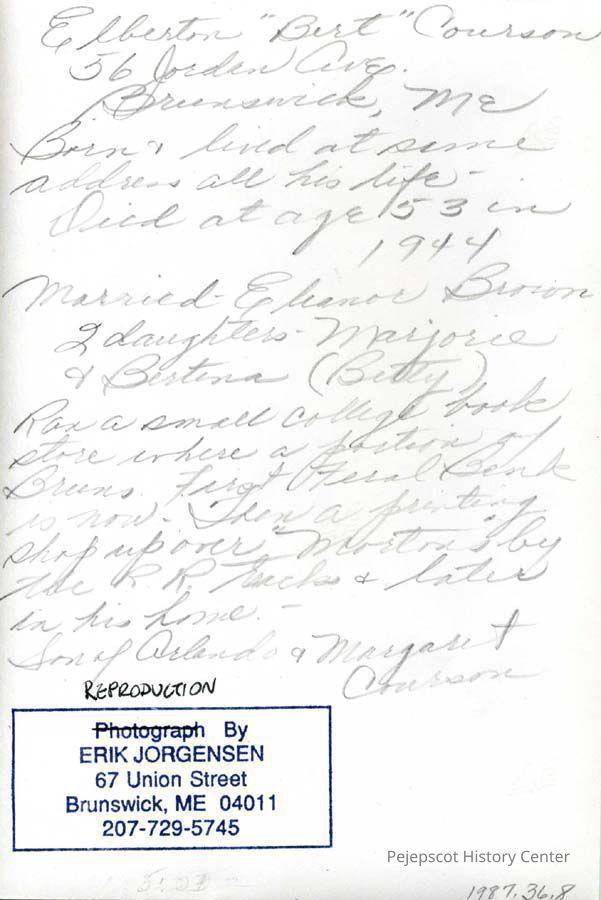 Elberton "Bert" Courson
56 Jordan Ave.
Brunswick, Me
Born & lived at same
address all his life -
Died at age 53 in
1944
Married - Eleanor Brown
2 daughters - Marjorie
& Bertena (Betty)
Ran a small college book
store where a portion of
Bruns. First Feral Bank
is now - Then a printing
shop up over "Morton's" by
the R.R. Tracks & later
in his home. -
Son of Orlando & Margaret
Courson
REPRODUCTION
Photograph By
ERIK JORGENSEN
67 Union Street
Brunswick, ME 04011
207-729-5745
Pejepscot History Center
1987.36.8